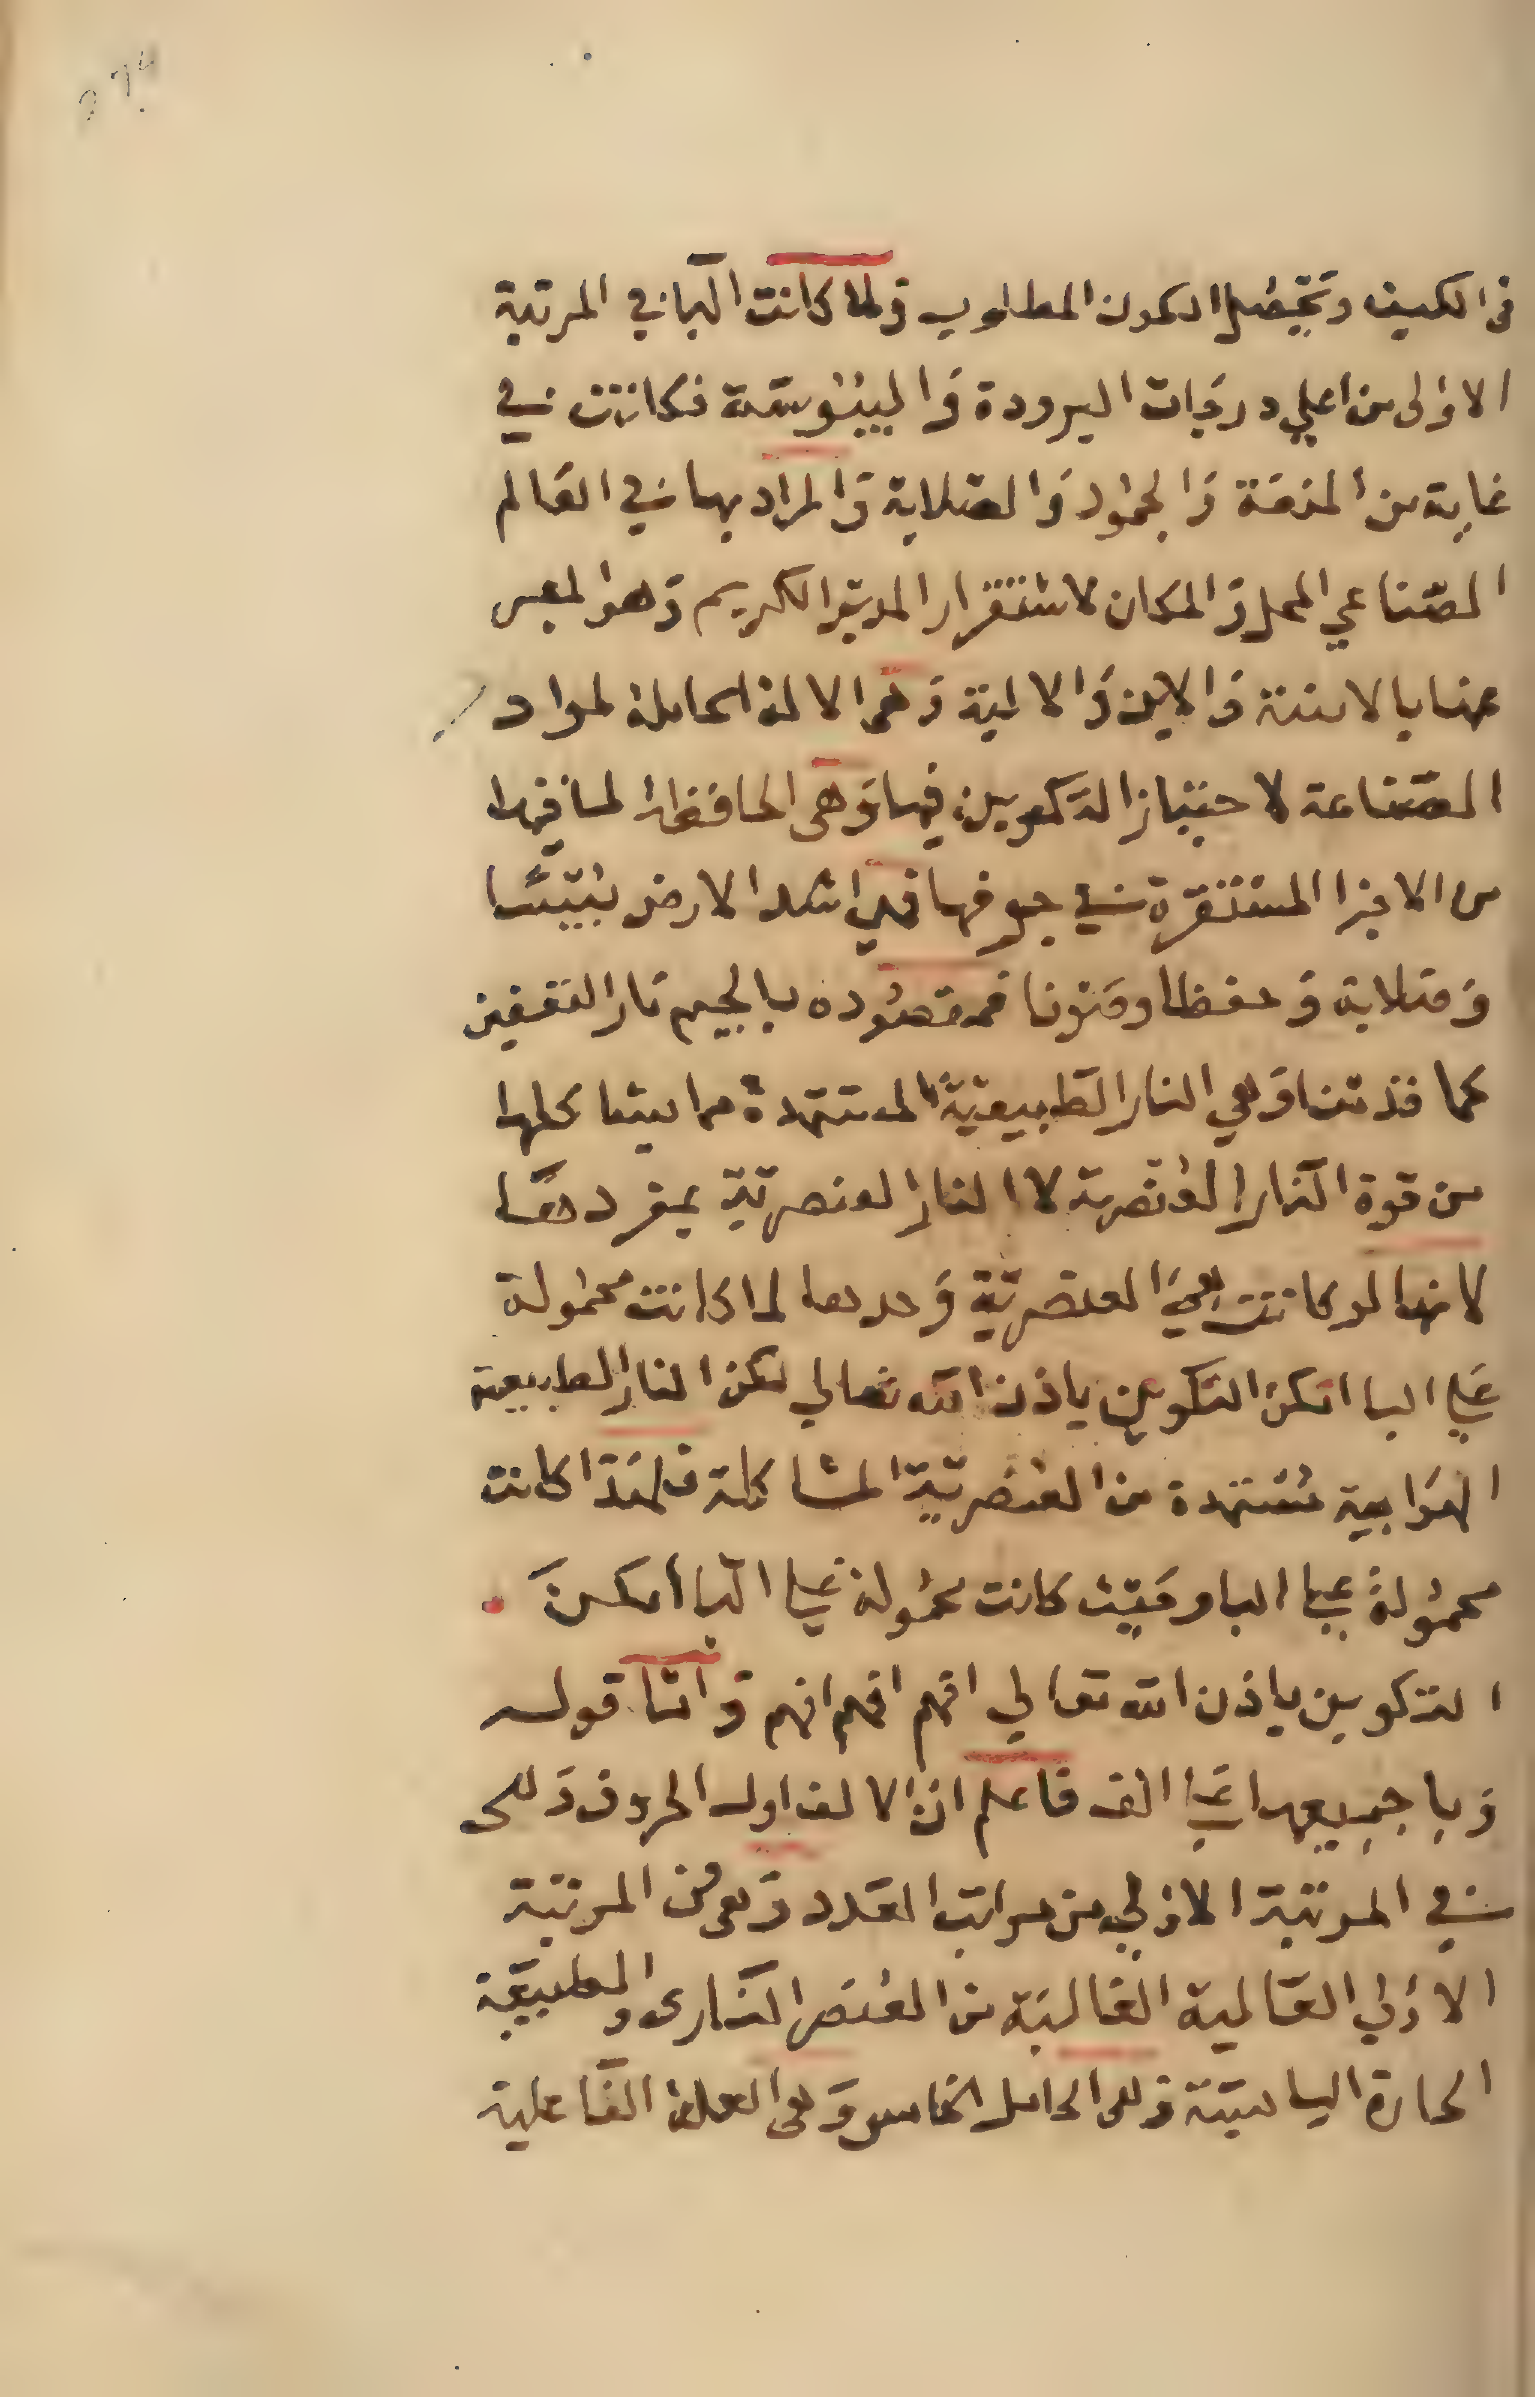 في الكيف وتحصل الكون المطلوب ولما كانت البا في المرتبة
الاولى من اعلي درجات البرودة واليبوسة فكانت في
غاية من المنعة والجمود والصلابة والمراد بها في العالم
الصناعي المحل والمكان لاستقرار المدبر الكريم وهو المعبر
عنها بالاينية والاين والالية وهي الالة الحاملة لمواد
الصناعة لاحتياز التكوين فيها وهي الحافظة لما فيها
من الاجزا المستقرة في جوفها فهي اشد الارض يبسا
وصلابة وحفظا وصونا فمقصوده بالجيم نار التعفين
كما قدمنا وهي النار الطبيعية المستمدة مما يشاكلها
من قوة النار العنصرية لا النار العنصرية بمفردها
لانها لو كانت هي العنصرية وحدها لما كانت محمولة
علي البا امكن التكوين باذن الله تعالي لكن النار الطبيعية
الهوايية مستمدة من العنصرية المشاكلة فلهذا كانت
محمولة علي البا وحيث كانت محمولة علي البا امكن
التكوين باذن الله تعالي افهم افهم افهم واما قوله
وبا جميعها علي الف فاعلم ان الالف اول الحروف وهي
في المرتبة الاولي من مراتب العدد وهي من المرتبة
الاولي العالية الغالبة من العنصر الناري والطبيعة
الحارة اليابسة وهي الحامل الخامس وهي العلة الفاعلية